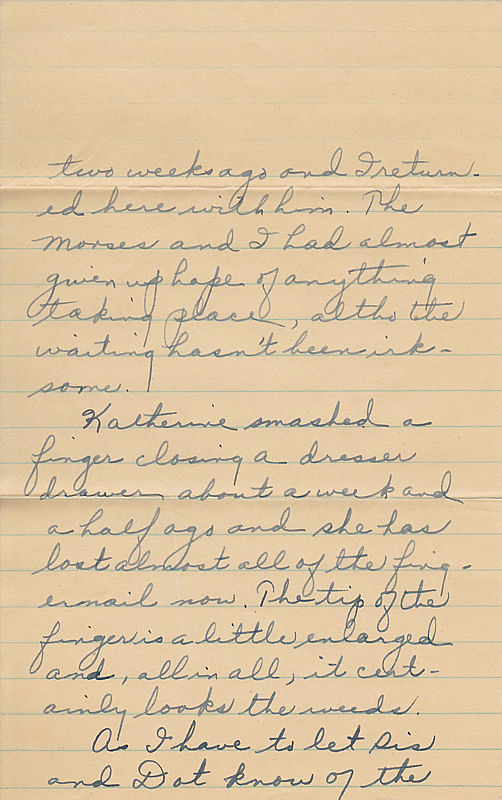 two weeks ago and I return-
ed here with him. The
Morses and I had almost
given up hope of anything
taking place, altho the
waiting hasn't been irk-
some.
Katherine smashed a
finger closing a dresser
drawer about a week and
a half ago and she has
lost almost all of the fing-
ernail now. The tip of the
finger is a little enlarged
and, all in all, it cert-
ainly looks the weeds.
As I have to let Sis
and Dot know of the